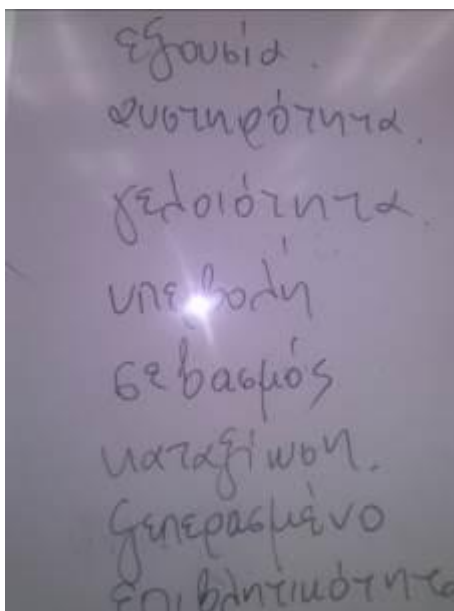 εξουσία.
αυστηρότητα.
γελοιότητα.
υπερβολή
σεβασμός
καταξίωση.
ξεπερασμένο
επιβλητικότητα